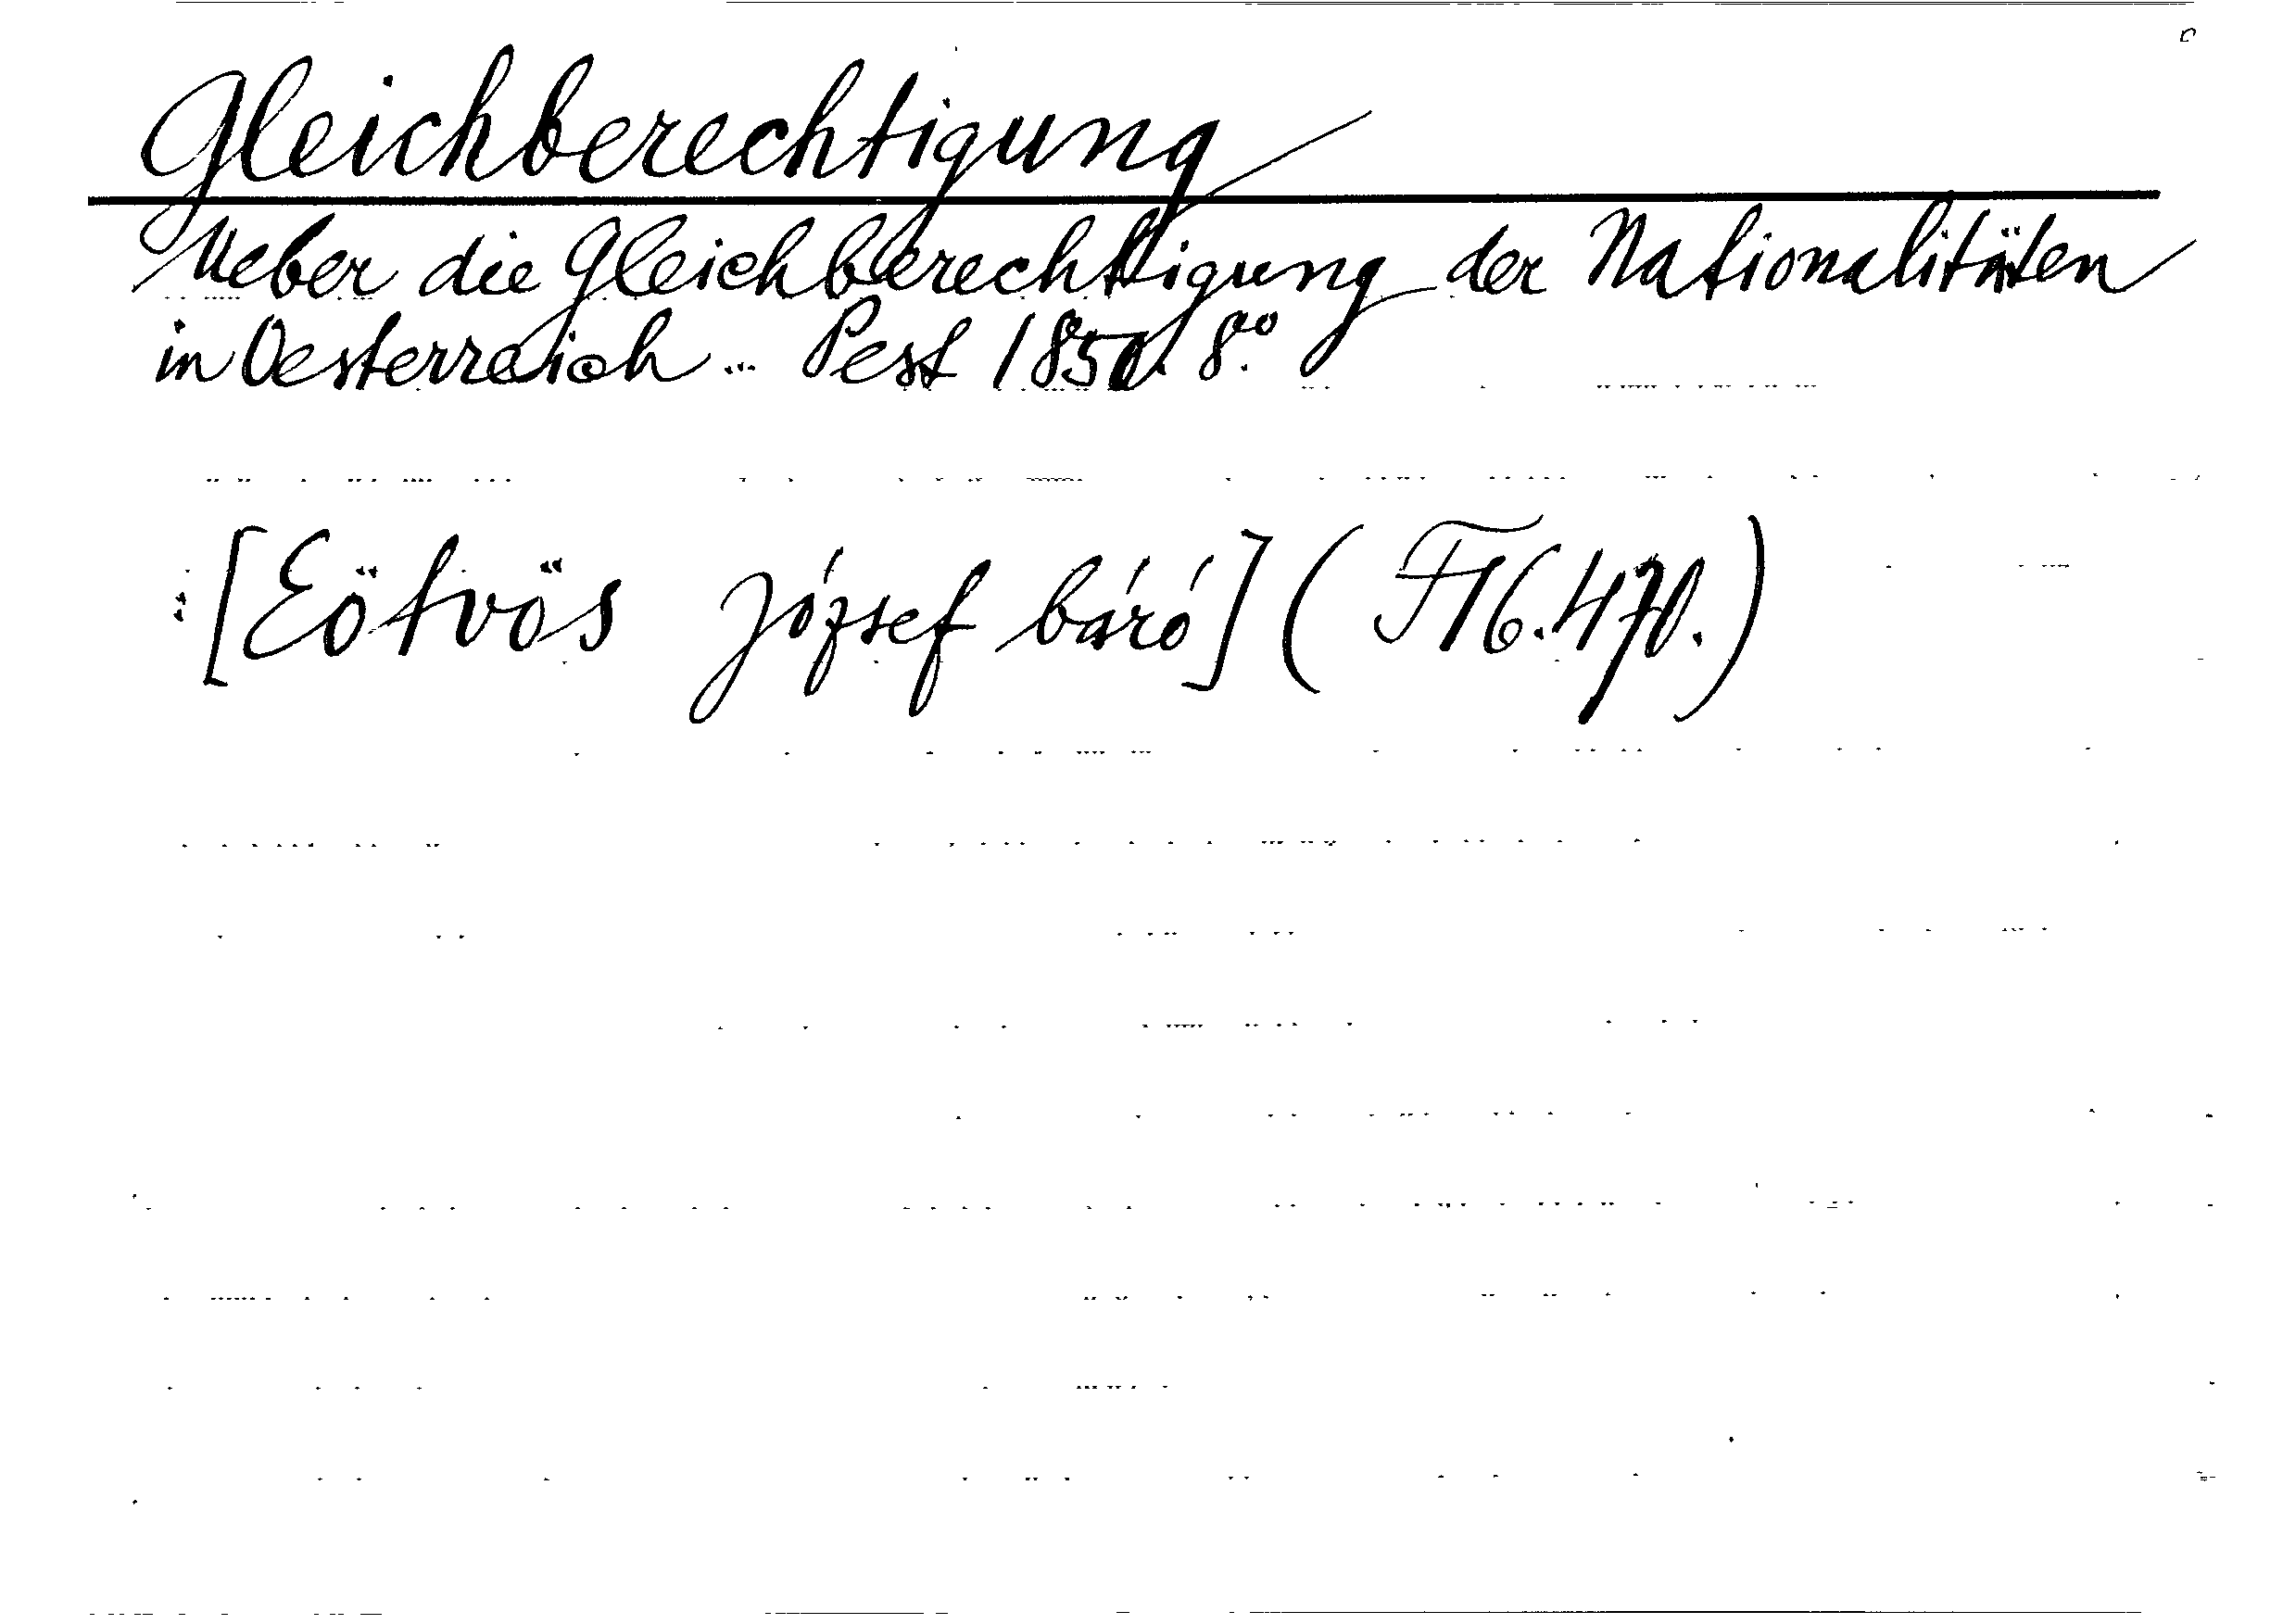 Gleichberechtigung
Ueber die Gleichberechtigung der Nationalitäten
in Oesterreich... Pest 1850. 8.°
: [Eötvös József báró] (F16.470.)